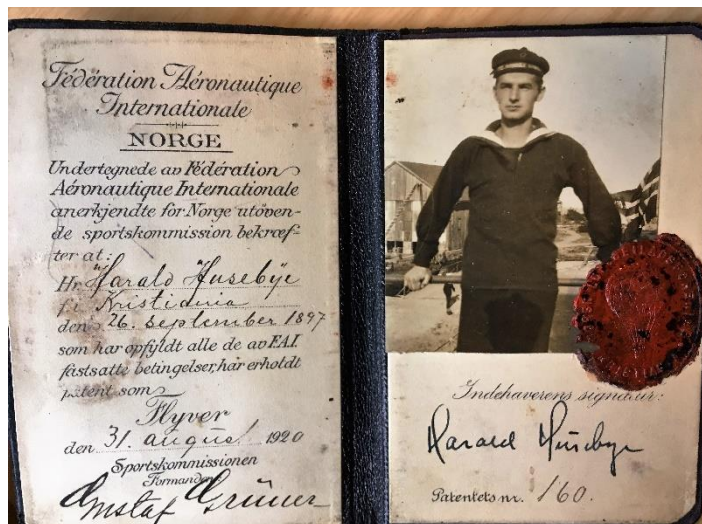 Fédération Aéronautique
Internationale
NORGE
Undertegnede av Fédération
Aéronautique Internationale
anerkjendte for Norge utöven-
de sportskommission bekræf-
ter at:
Hr. Harald Husebye
f. i Kristiania
den 26. september 1897
som har opfyldt alle de av F.A.I.
fastsatte betingelser, har erholdt
patent som
Flyver
den 31. august 1920
Sportskommissionen
Formanden
Gustaf Grüner
Indehaverens signatur:
Harald Husebye
Patentets nr. 160.